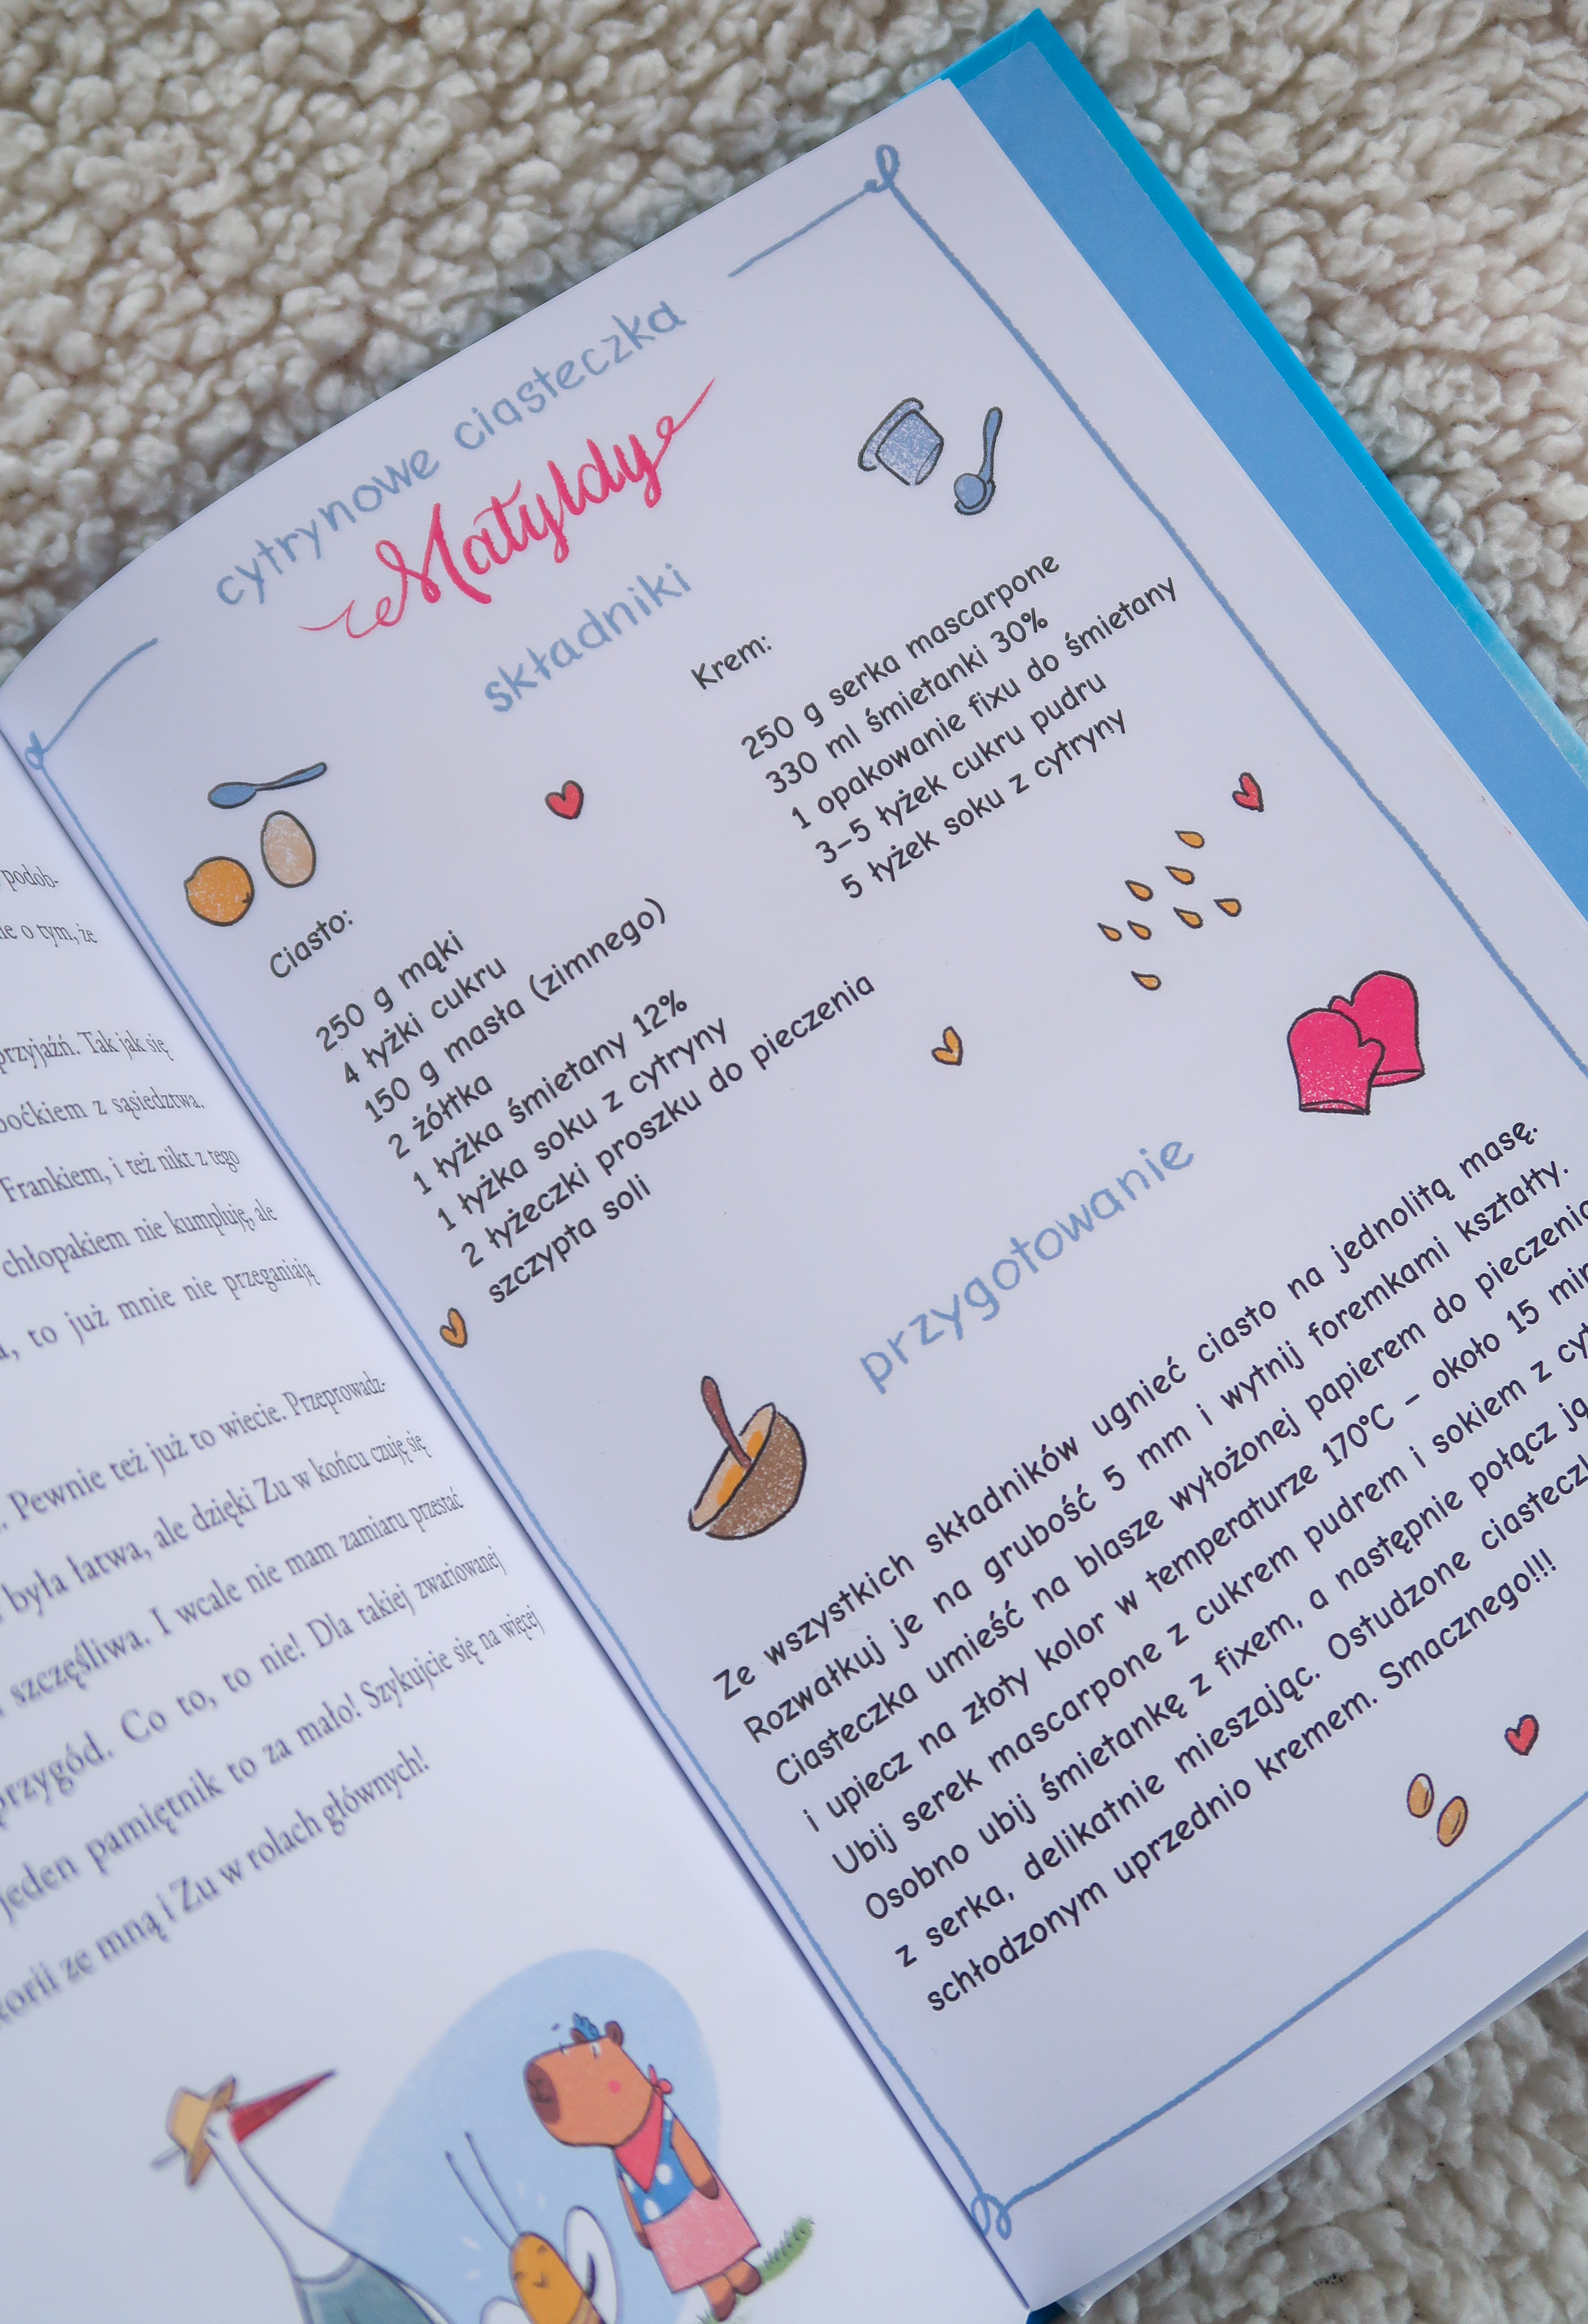 podob-
o tym, że
przyjaźń. Tak jak się
z sąsiedztwa.
Frankiem, i też nikt z tego
chłopakiem nie kumpluję, ale
to już mnie nie przeganiają
Pewnie też już to wiecie. Przeprowadz-
była łatwa, ale dzięki Zu w końcu czuję się
szczęśliwa. I wcale nie mam zamiaru przestać
przygód. Co to, to nie! Dla takiej zwariowanej
jeden pamiętnik to za mało! Szykujcie się na więcej
ze mną i Zu w rolach głównych!
cytrynowe ciasteczka
Matyldy
składniki
Ciasto:
250 g mąki
4 łyżki cukru
150 g masła (zimnego)
2 żółtka
1 łyżka śmietany 12%
1 łyżka soku z cytryny
2 łyżeczki proszku do pieczenia
szczypta soli
Krem:
250 g serka mascarpone
330 ml śmietanki 30%
1 opakowanie fixu do śmietany
3–5 łyżek cukru pudru
5 łyżek soku z cytryny
przygotowanie
Ze wszystkich składników ugnieć ciasto na jednolitą masę.
Rozwałkuj je na grubość 5 mm i wytnij foremkami kształty.
Ciasteczka umieść na blasze wyłożonej papierem do pieczenia
i upiecz na złoty kolor w temperaturze 170°C – około 15
Ubij serek mascarpone z cukrem pudrem i sokiem z
Osobno ubij śmietankę z fixem, a następnie połącz ją
z serka, delikatnie mieszając. Ostudzone
schłodzonym uprzednio kremem. Smacznego!!!